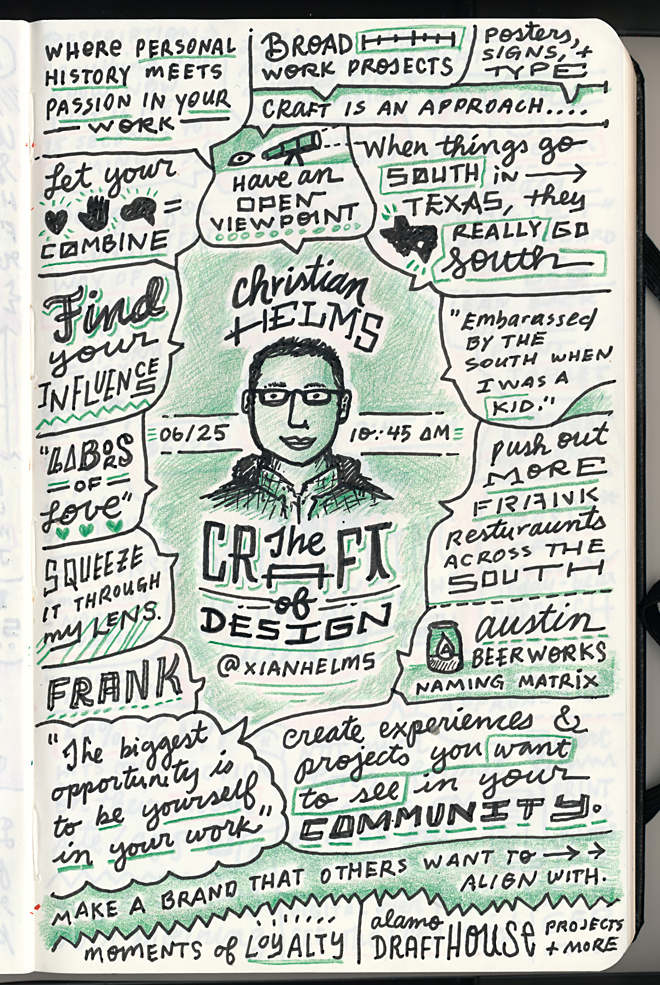 WHERE PERSONAL
HISTORY MEETS
PASSION IN YOUR
WORK
BROAD
WORK PROJECTS
Posters,
SIGNS, +
TYPE
CRAFT IS AN APPROACH....
Let your
=
COMBINE
HAVE an
OPEN
VIEWPOINT
When things go
SOUTH in
TEXAS, they
REALLY GO
South
Find
your
INFLUENCES
christian
HELMS
"Embarassed
BY THE
SOUTH WHEN
I WAS A
KID."
06/25
10:45 AM
"LABORS
OF
Love"
push out
MORE
FRANK
Resturaunts
ACROSS THE
SOUTH
The
CRAFT
of
DESIGN
@XIANHELMS
SQUEEZE
IT THROUGH
my LENS.
austin
BEERWORKS
NAMING MATRIX
FRANK
"The biggest
opportunity is
to be yourself
in your work"
create experiences &
projects you want
to see in your
COMMUNITY.
MAKE A BRAND THAT OTHERS WANT TO
ALIGN WITH.
MOMENTS of LOYALTY
alamo
DRAFTHOUSE
PROJECTS
+ MORE